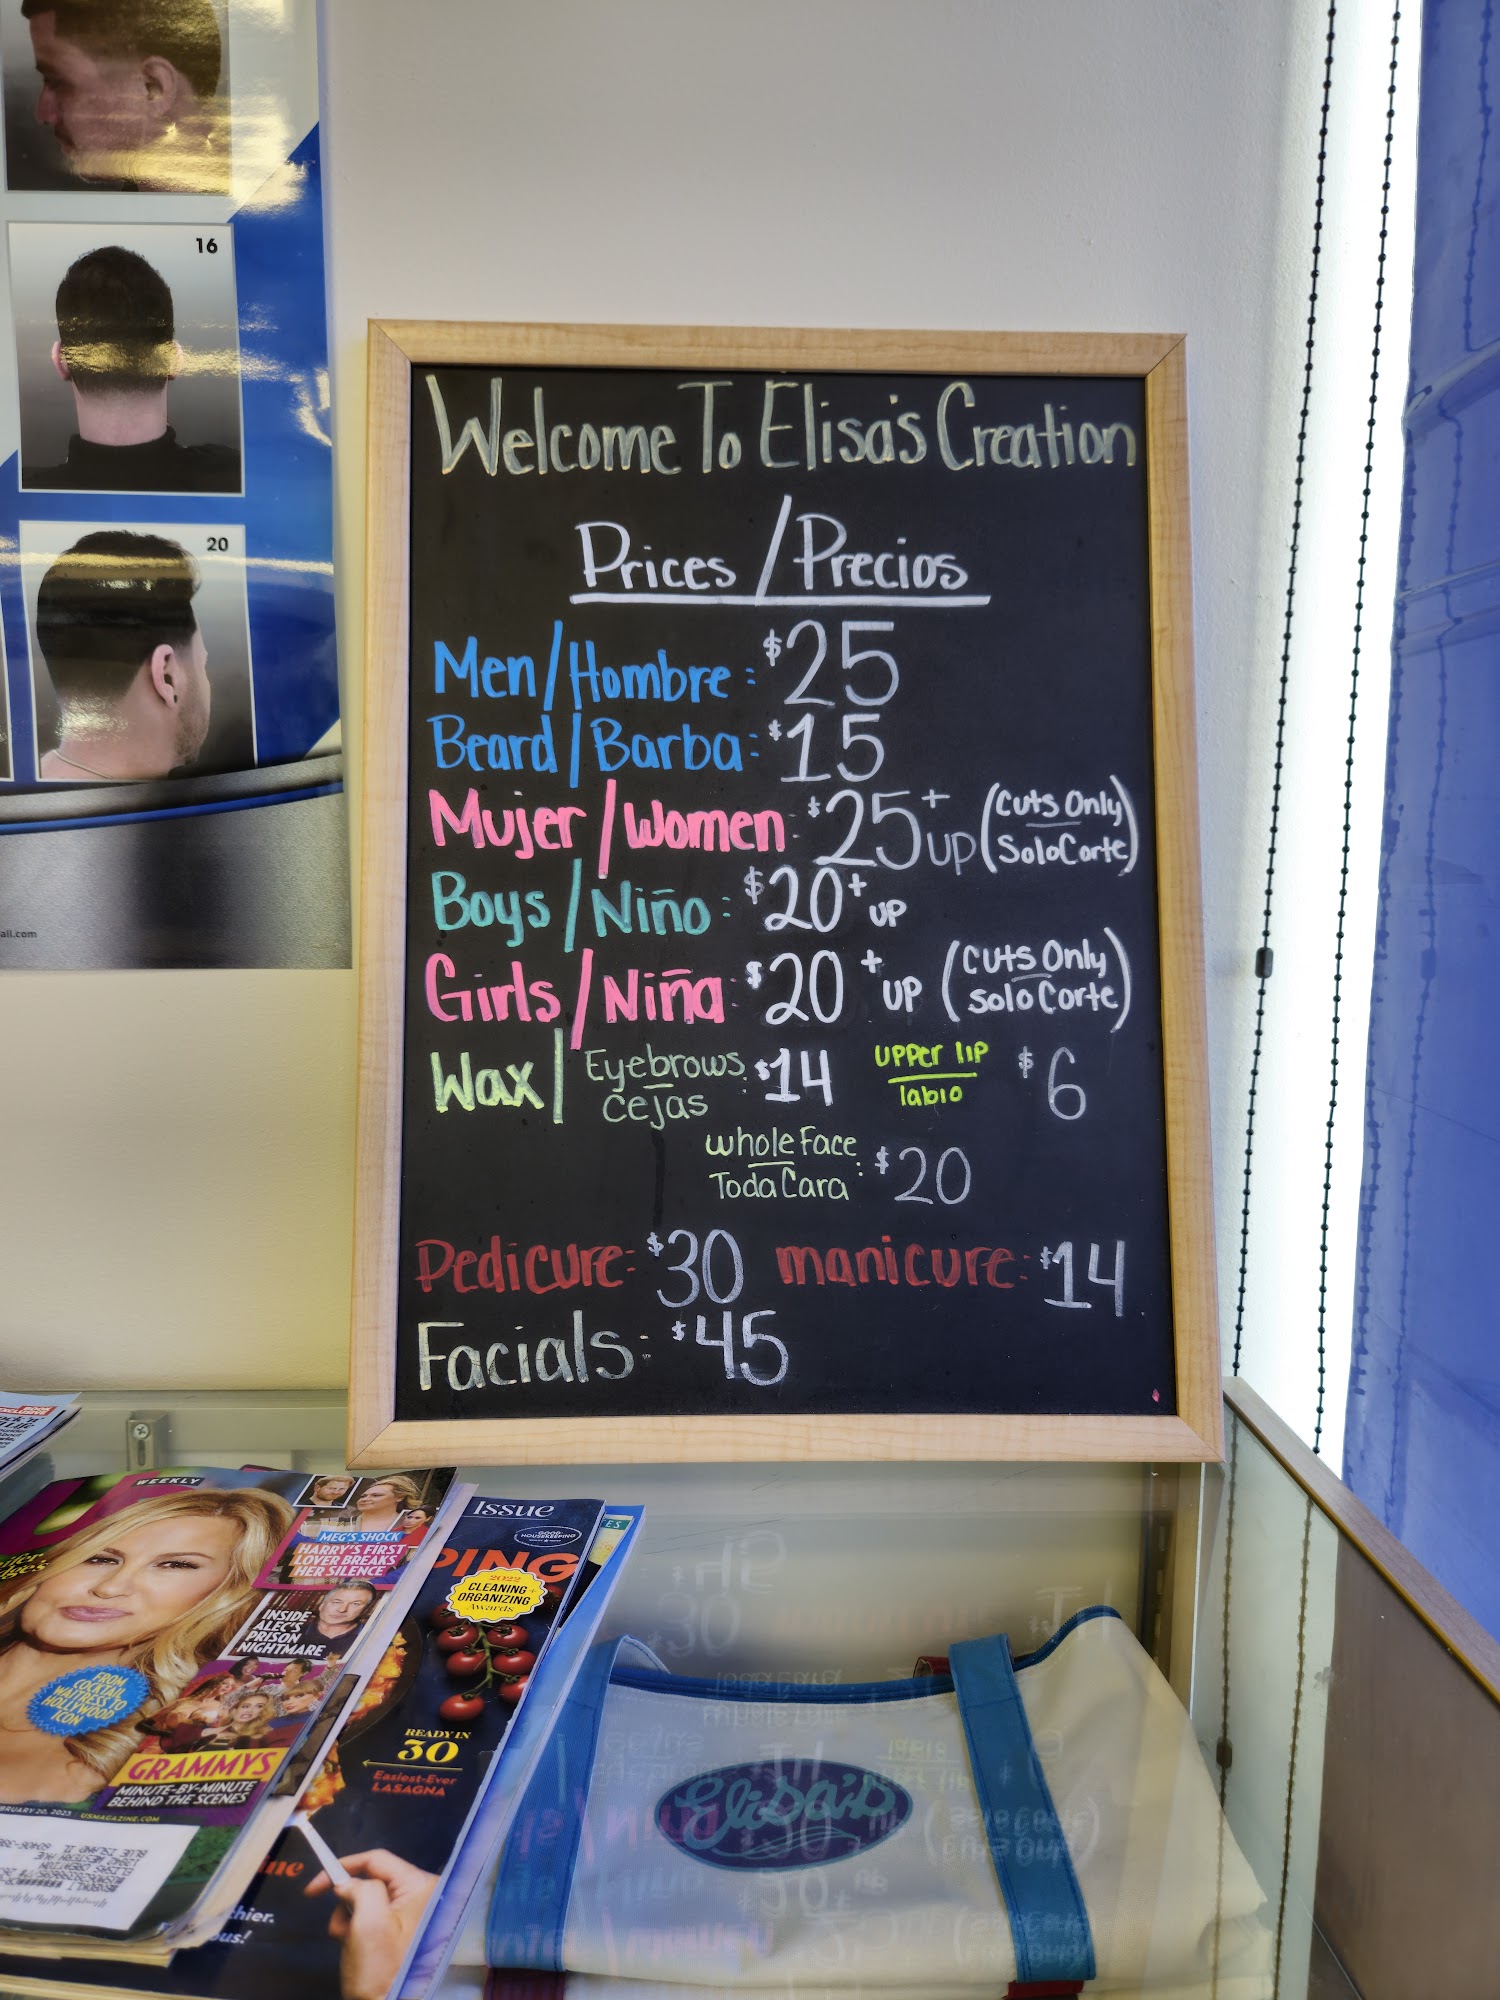 16
20
ail.com
Welcome To Elisa's Creation
Prices / Precios
Men/Hombre: $25
Beard/Barba: $15
Mujer/Women: $25+ UP (Cuts Only Solo Corte)
Boys/Niño: $20+ UP
Girls/Niña: $20+ UP (Cuts Only Solo Corte)
Wax/ Eyebrows cejas: $14 UPPer lip labio $6
whole Face Toda Cara: $20
Pedicure: $30 manicure: $14
Facials: $45
WEEKLY
MEG'S SHOCK
HARRY'S FIRST
LOVER BREAKS
HER SILENCE
INSIDE
ALEC'S
PRISON
NIGHTMARE
FROM
COCKTAIL
WAITRESS TO
HOLLYWOOD
ICON
GRAMMYS
MINUTE-BY-MINUTE
BEHIND THE SCENES
FEBRUARY 20, 2023 | USMAGAZINE.COM
Issue
GOOD HOUSEKEEPING
PING
2022
CLEANING +
ORGANIZING
Awards
READY IN
30
Easiest-Ever
LASAGNA
Elisa's